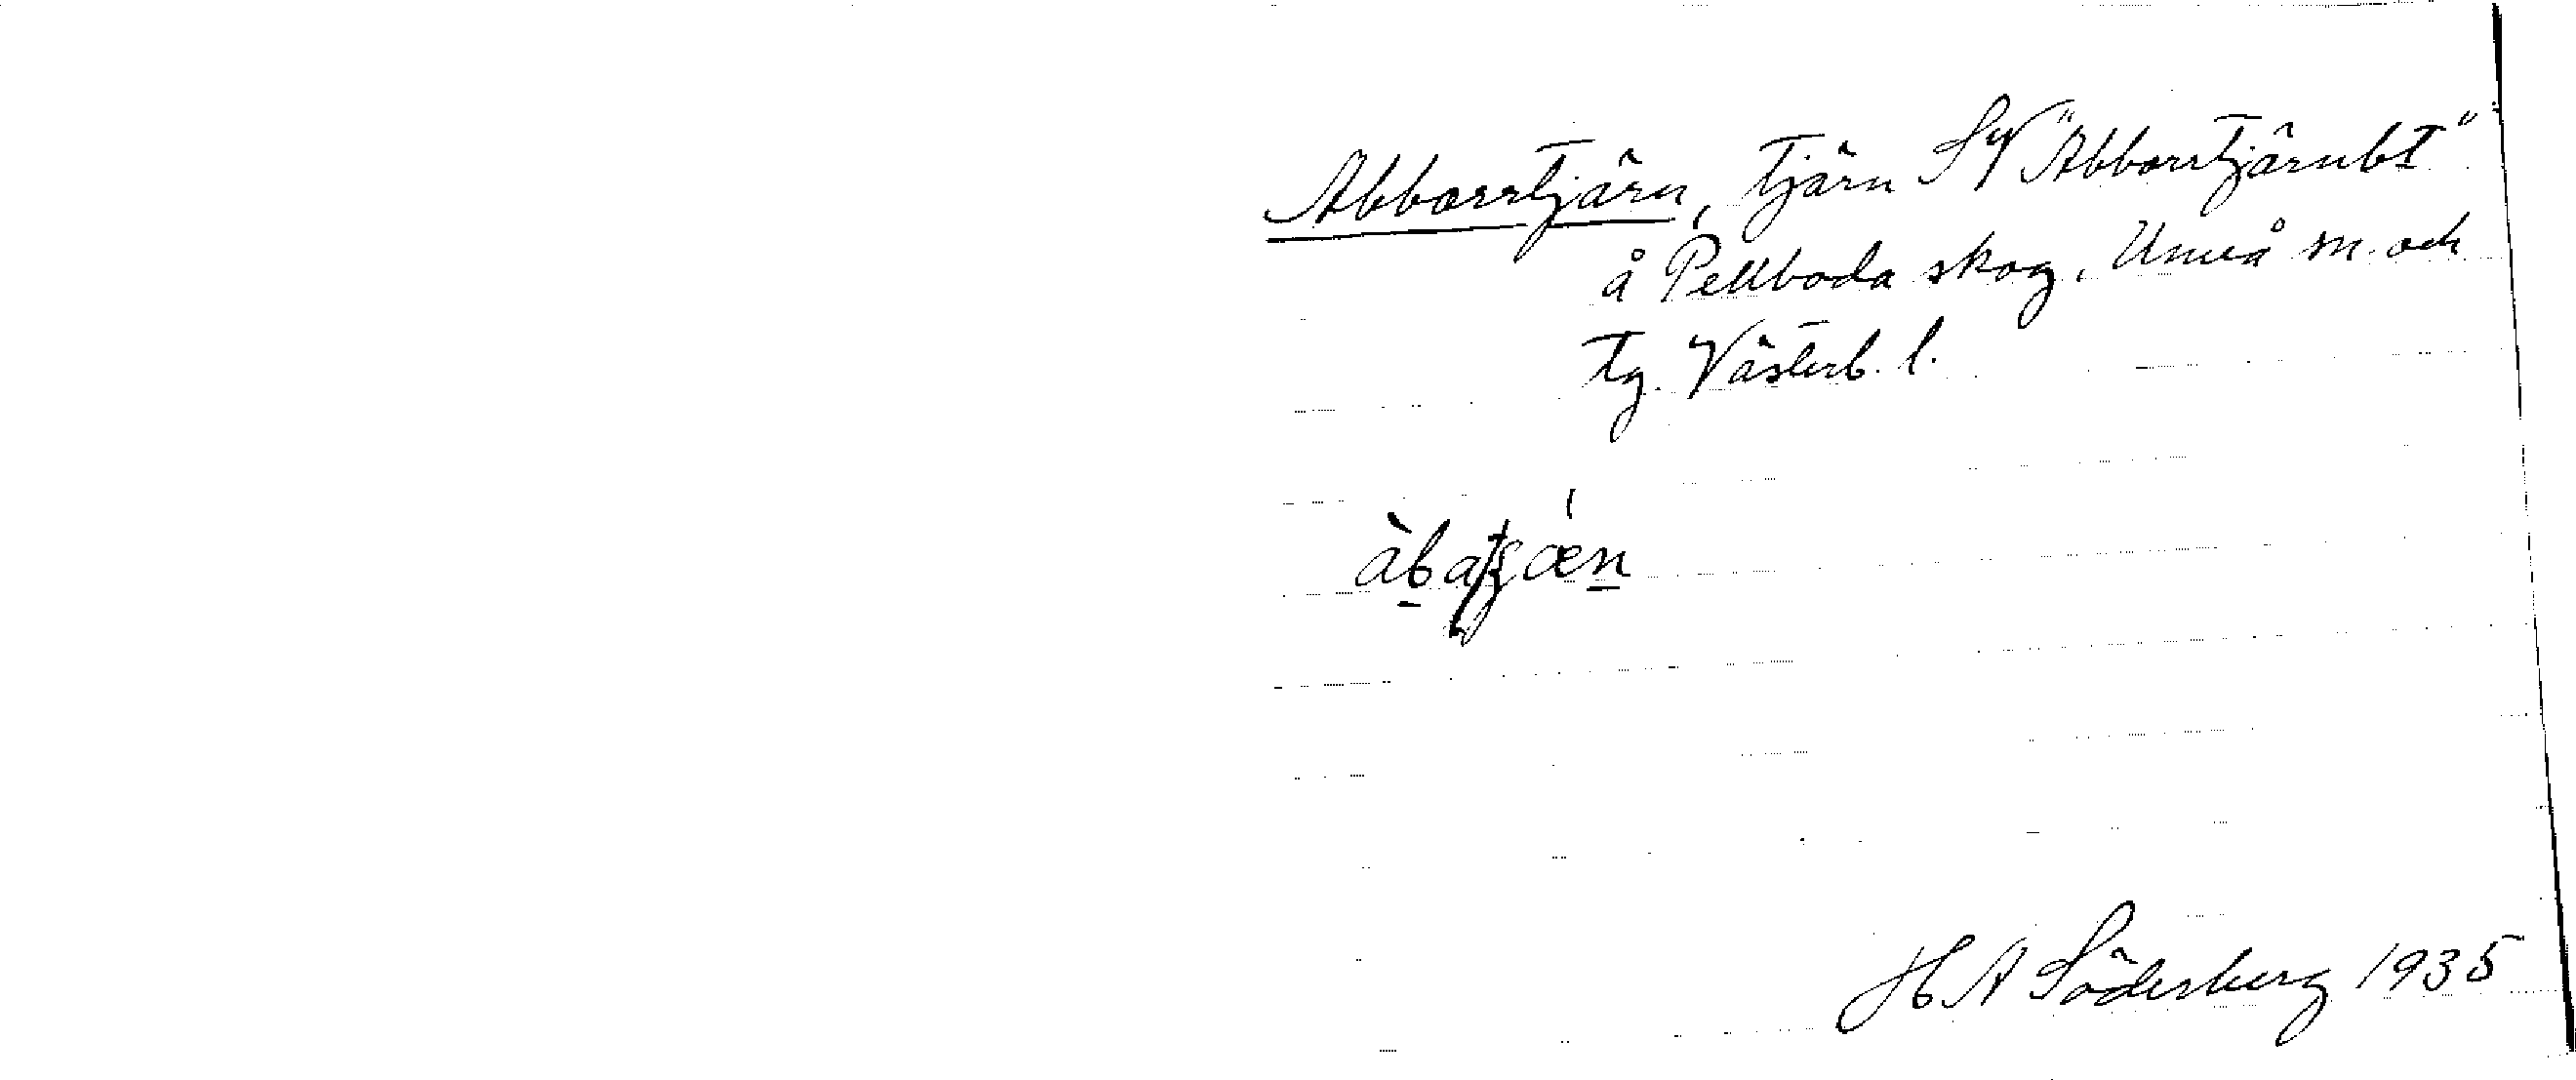 Abborrtjärn, tjärn SV "Abborrtjärnbt"
å Pellboda skog. Umeå sn. och
tg. Västerb. l.
àbatʂæ̀n
H A Söderberg 1935